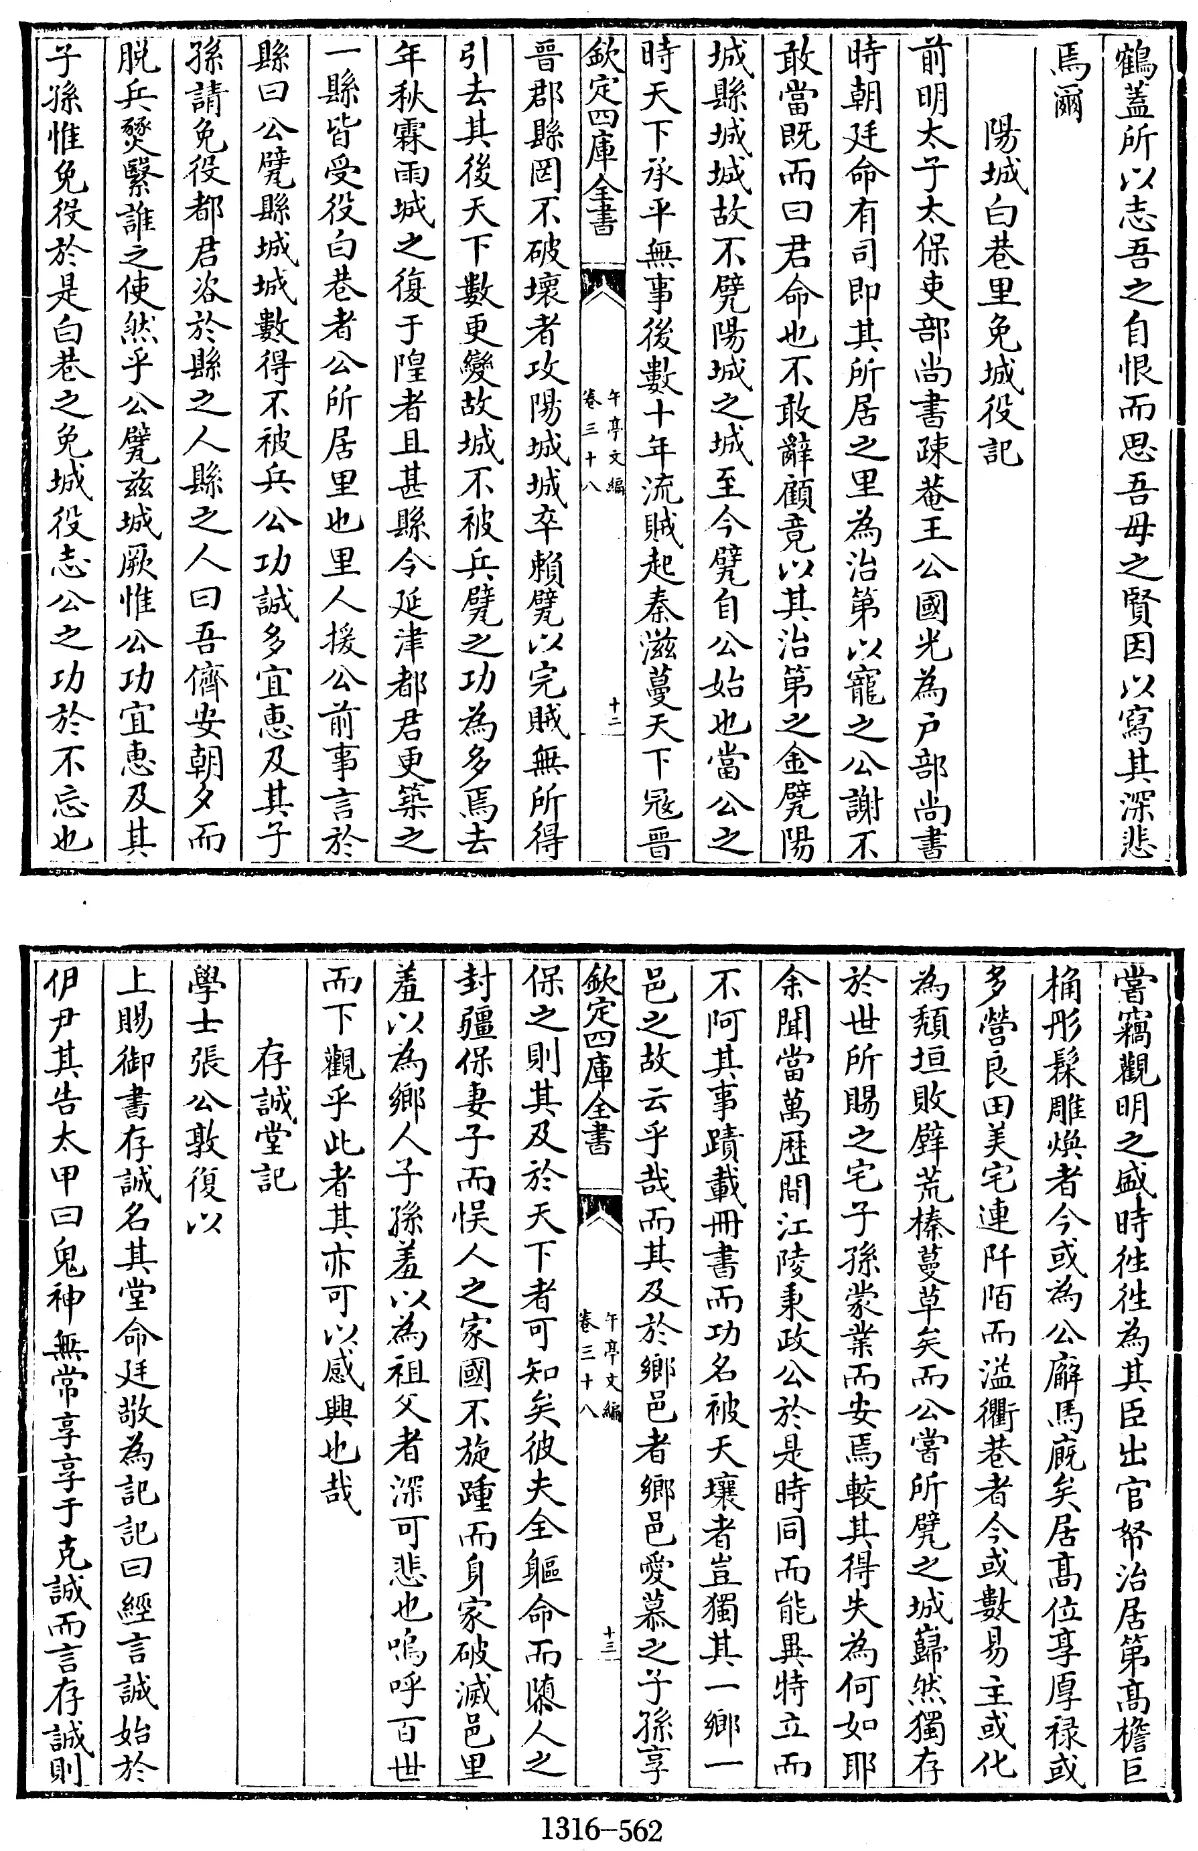 鶴蓋所以志吾之自恨而思吾母之賢因以寫其深悲
焉爾
陽城白巷里免城役記
前明太子太保吏部尚書疎菴王公國光為戶部尚書
時朝廷命有司即其所居之里為治第以寵之公謝不
敢當既而曰君命也不敢辭顧竟以其治第之金甓陽
城縣城城故不甓陽城之城至今甓自公始也當公之
時天下承平無事後數十年流賊起秦滋蔓天下冦晉
欽定四庫全書
午亭文編
卷三十八
十二
晉郡縣罔不破壞者攻陽城城卒賴甓以完賊無所得
引去其後天下數更變故城不被兵甓之功為多焉去
年秋霖雨城之復于隍者且甚縣令延津都君更築之
一縣皆受役白巷者公所居里也里人援公前事言於
縣曰公甓縣城城數得不被兵公功誠多宜惠及其子
孫請免役都君咨於縣之人縣之人曰吾儕安朝夕而
脱兵燹緊誰之使然乎公甓兹城厥惟公功宜惠及其
子孫惟免役於是白巷之免城役志公之功於不忘也
嘗竊觀明之盛時徃徃為其臣出官帑治居第髙檐巨
桷彤髹雕煥者今或為公廨馬廐矣居髙位享厚禄或
多營良田美宅連阡陌而溢衢巷者今或數易主或化
為頽垣敗壁荒榛蔓草矣而公嘗所甓之城巋然獨存
於世所賜之宅子孫蒙業而安焉較其得失為何如耶
余聞當萬歴間江陵秉政公於是時同而能異特立而
不阿其事蹟載冊書而功名被天壤者豈獨其一鄉一
邑之故云乎哉而其及於鄉邑者鄉邑愛慕之子孫享
欽定四庫全書
午亭文編
卷三十八
十三
保之則其及於天下者可知矣彼夫全軀命而隳人之
封疆保妻子而悞人之家國不旋踵而身家破滅邑里
羞以為鄉人子孫羞以為祖父者深可悲也嗚呼百世
而下觀乎此者其亦可以感興也哉
存誠堂記
學士張公敦復以
上賜御書存誠名其堂命廷敬為記記曰經言誠始於
伊尹其告太甲曰鬼神無常享享于克誠而言存誠則
1316-562